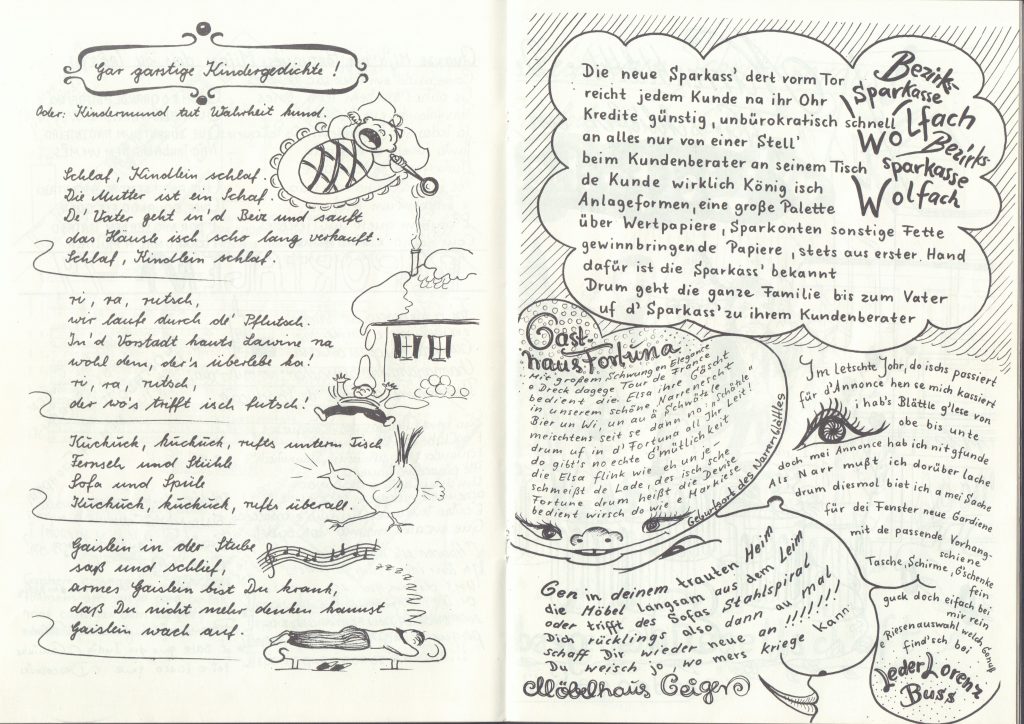 Gar garstige Kindergedichte!
Oder: Kindermund tut Wahrheit kund.
Schlaf, Kindlein schlaf.
Die Mutter ist ein Schaf.
De' Vater geht in'd Beiz und sauft
das Häusle isch scho lang verkauft.
Schlaf, Kindlein schlaf.
ri, ra, rutsch,
wir laufe durch de' Pflutsch.
In'd Vorstadt hauts Lawine na
wohl dem, der's überlebe ka!
ri, ra, rutsch,
der wo's trifft isch futsch!
Kuckuck, kuckuck, rufts unterm Tisch
Fernseh und Stühle
Sofa und Spüle
Kuckuck, kuckuck, rufts überall.
Gaislein in der Stube
saß und schlief,
armes Gaislein bist Du krank,
daß Du nicht meler denken kannst
Gaislein wach auf.
Die neue Sparkass' dert vorm Tor
reicht jedem Kunde na ihr Ohr
Kredite günstig, unbürokratisch schnell
an alles nur von einer Stell'
beim Kundenberater an seinem Tisch
de Kunde wirklich König isch
Anlageformen, eine große Palette
über Wertpapiere, Sparkonten sonstige Fette
gewinnbringende Papiere, stets aus erster Hand
dafür ist die Sparkass' bekannt
Drum geht die ganze Familie bis zum Vater
uf d' Sparkass' zu ihrem Kundenberater
Bezirks-
Sparkasse
Wolfach
Bezirks
sparkasse
Wolfach
Gast-
haus Fortuna
Mit großem Schwung en Elegance
e Dreck dagege Tour de France
bedient die Elsa ihre Gäscht
in unserem schöne Narrenescht
Bier un Wi, un au ä Schwätzle
meischtens seit se dann no: "Schätzle"
drum uf in d' Fortuna all Ihr Leit!
do gibt's no echte G'mütlichkeit
die Elsa flink wie eh un je-
schmeißt de Lade, des isch sche
Fortune drum heißt die Devise
bedient wirsch do wie e Markiese
Geburtsort des Narrenblättles
Im letschte Johr, do ischs passiert
für d'Annonce hen se mich kassiert
i hab's Blättle g'lese von
obe bis unte
doch mei Annonce hab ich nit gfunde
Als Narr mußt ich dorüber lache
drum diesmal biet ich a mei Sache
für dei Fenster neue Gardiene
mit de passende Vorhang-
schiene
Tasche, Schirme, G'schenke
fein
guck doch eifach bei
mir rein
Riesenauswahl welch Genuß
find'sch bei
LederLorenz
Buss
Gen in deinem trauten Heim
die Möbel langsam aus dem Leim
oder trifft des Sofas Stahlspiral
Dich rücklings also dann au mal
schaff Dir wieder neue an!!!!!!!
Du weisch jo, wo mers kriege kann
Möbelhaus Geiger